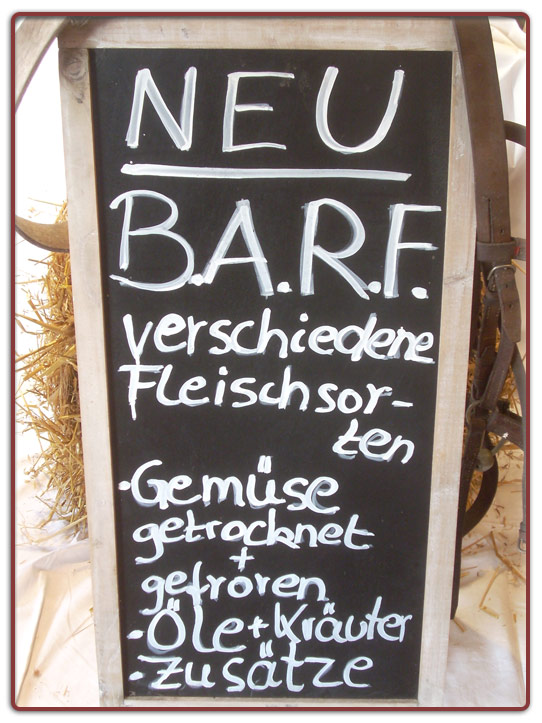 NEU
B.A.R.F.
verschiedene
Fleischsor-
ten
·Gemüse
getrocknet
+
gefroren
·Öle+Kräuter
·Zusätze